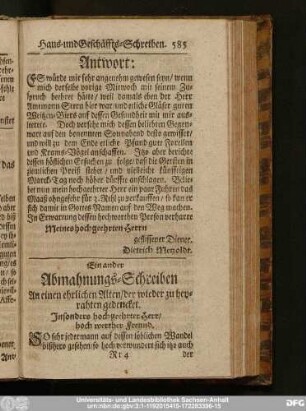 Haus-und Geschäffts-Schreiben. 585
Antwort:
ES würde mir sehr angenehm gewesen seyn / wenn
mich derselbe vorige Mitwoch mit seinem Zu-
spruch beehret hätte / weil damals eben der Herr
hier war und etliche Gläser guten
Biers auf dessen Gesundheit mit mir aus-
leerete. Doch versehe mich dessen beliebten Gegen-
wart auf den benennten Sonnabend desto gewisser /
und will zu dem Ende etliche
und Krams-Vögel anschaffen. Jtzo aber berichte
dessen höflichen Ersuchen zu folge daß die Gersten in
ziemlichen Preiß stehe / und vielleicht künfftigen
Marck-Tag noch höher dürffte anschlagen. Beliebt
nun mein hochgeehrter Herr ein paar Fuhren das
Maaß ohngefehr für 2. Rthl zu verkauffen / so kan er
sich damit in Gottes Namen auf den Weg machen.
Jn Erwartung dessen hochwerthen Person verharre
Meines hochgeehrten Herrn
geflissener Diener.
Dietrich
Ein ander
Abmahnungs-Schreiben
An einen ehrlichen Alten / der wieder zu hey-
rathen gedencket.
Jnsonders hochgeehrter Herr /
hoch werther Freund.
SO sehr jedermann auf dessen löblichen Wandel
bißhero gesehen / so hoch verwundert sich itzo auch
Rr 4 der
Universitäts- und Landesbibliothek Sachsen-Anhalt
urn:nbn:de:gbv:3:1-1192015415-172283396-15
DFG